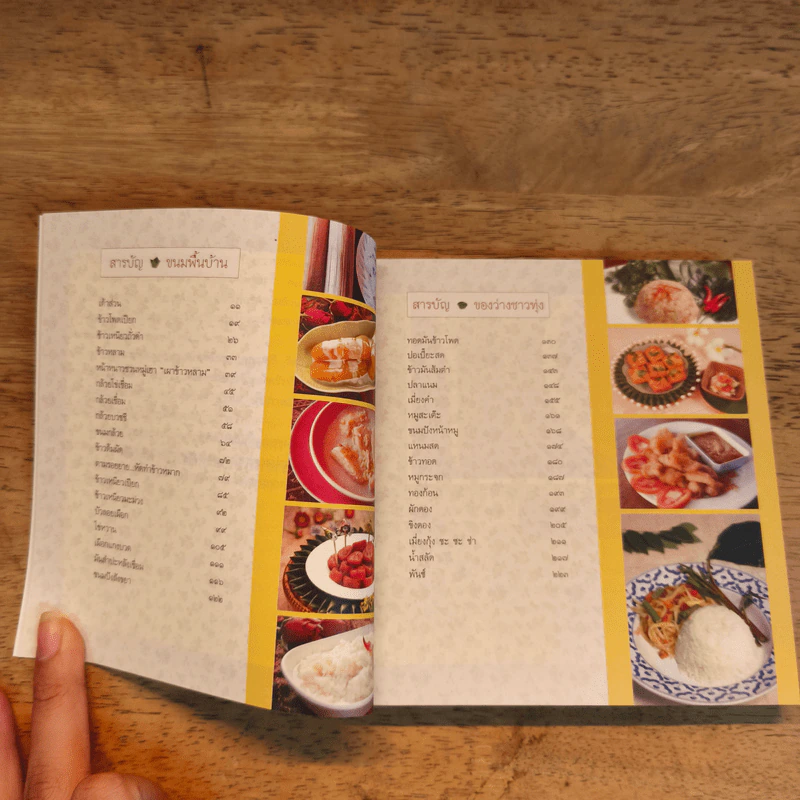 สารบัญ ขนมพื้นบ้าน
เต้าส่วน ๑๑
ข้าวโพดเปียก ๑๙
ข้าวเหนียวถั่วดำ ๒๖
ข้าวหลาม ๓๓
หน้าหนาวชวนหมู่เฮา "เผาข้าวหลาม" ๓๙
กล้วยไข่เชื่อม ๔๕
กล้วยเชื่อม ๕๑
กล้วยบวชชี ๕๘
ขนมกล้วย ๖๔
ข้าวต้มมัด ๗๒
ตามรอยยาย...หัดทำข้าวหมาก ๗๙
ข้าวเหนียวเปียก ๘๕
ข้าวเหนียวมะม่วง ๙๒
บัวลอยเผือก ๙๙
ไข่หวาน ๑๐๕
เผือกแกงบวด ๑๑๑
มันสำปะหลังเชื่อม ๑๑๖
ขนมปังสังขยา ๑๒๒
สารบัญ ของว่างชาวทุ่ง
ทอดมันข้าวโพด ๑๓๐
ปอเปี๊ยะสด ๑๓๗
ข้าวมันส้มตำ
ปลาแนม ๑๔๘
เมี่ยงคำ ๑๕๕
หมูสะเต๊ะ ๑๖๑
ขนมปังหน้าหมู ๑๖๘
แหนมสด ๑๗๔
ข้าวทอด ๑๘๐
หมูกระจก ๑๘๗
ทองก้อน ๑๙๓
ผักดอง ๑๙๙
ขิงดอง ๒๐๕
เมี่ยงกุ้ง ชะ ชะ ช่า ๒๑๑
น้ำสลัด ๒๑๗
พันช์ ๒๒๓